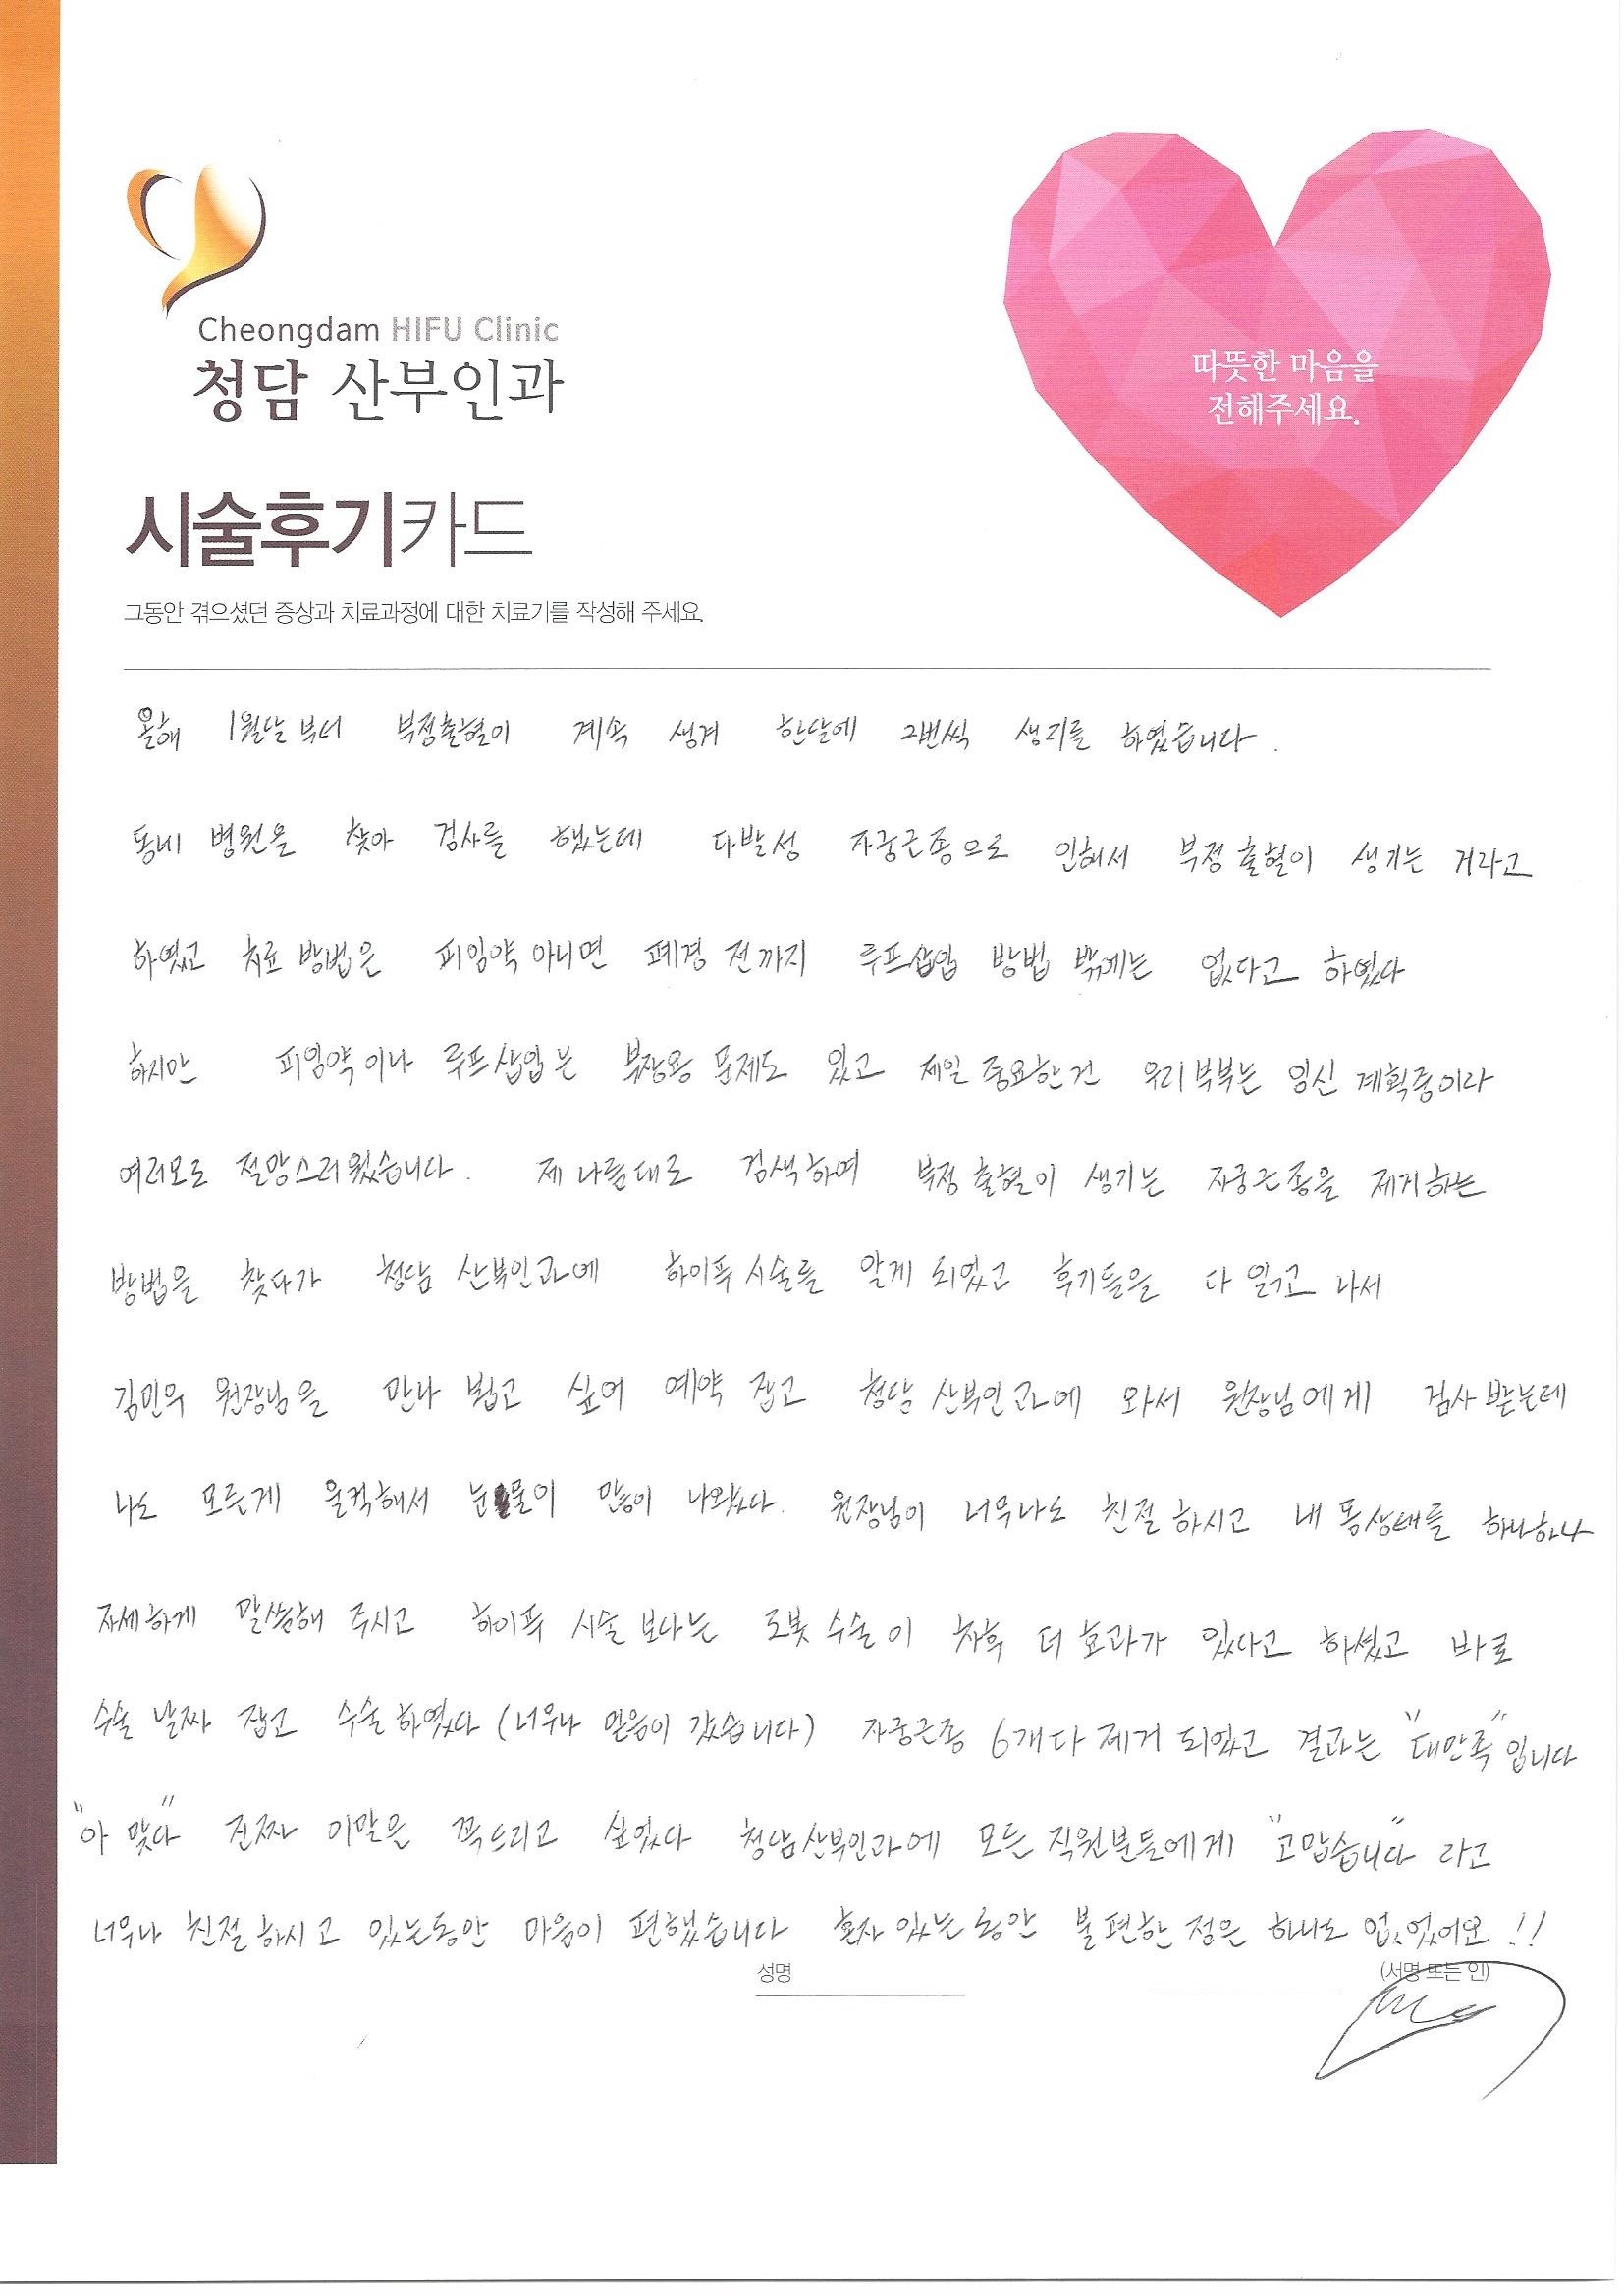 Cheongdam HIFU Clinic
청담 산부인과
따뜻한 마음을
전해주세요.
시술후기카드
그동안 겪으셨던 증상과 치료과정에 대한 치료기를 작성해 주세요.
올해 1월달 부터 부정출혈이 계속 생겨 한달에 2번씩 생리를 하였습니다.
동네 병원을 찾아 검사를 했는데 다발성 자궁근종으로 인해서 부정출혈이 생기는 거라고
하였고 치료 방법은 피임약 아니면 폐경 전까지 루프삽입 방법 밖에는 없다고 하였다
하지만 피임약이나 루프삽입은 부작용 문제도 있고 제일 중요한건 우리부부는 임신 계획중이라
여러모로 절망스러웠습니다. 제 나름대로 검색하여 부정출혈이 생기는 자궁근종을 제거하는
방법을 찾다가 청담 산부인과에 하이푸시술를 알게 되었고 후기들을 다 읽고 나서
김민우 원장님을 만나 뵙고 싶어 예약 잡고 청담산부인과에 와서 원장님에게 검사받는데
나도 모르게 울컥해서 눈물이 많이 나왔다. 원장님이 너무나도 친절하시고 내 몸상태를 하나하나
자세하게 말씀해 주시고 하이푸 시술 보다는 로봇수술이 차후 더 효과가 있다고 하셨고 바로
수술 날짜 잡고 수술하였다 (너무나 믿음이 갔습니다) 자궁근종 6개다 제거 되었고 결과는 "대만족"입니다
"아 맞다" 진짜 이말은 꼭드리고 싶었다 청담산부인과에 모든 직원분들에게 "고맙습니다" 라고
너무나 친절하시고 있는동안 마음이 편했습니다 혼자 있는동안 불편한 점은 하나도 없었어요!!
성명
(서명 또는 인)